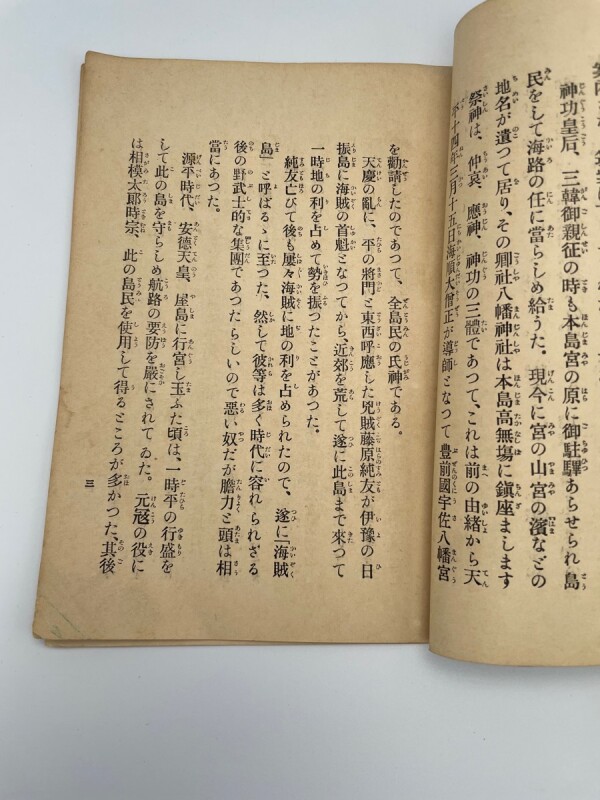 神功皇后、三韓御親征の時も本島宮の原に御駐驛あらせられ島
民をして海路の任に當らしめ給うた。現今に宮の山宮の濱などの
地名が遺つて居り、その郷社八幡神社は本島高無塲に鎭座まします
祭神は、仲哀、應神、神功の三體であつて、これは前の由緒から天
平十四年三月十五日海順大僧正が導師となつて豊前國宇佐八幡宮
を勸請したのであつて、全島民の氏神である。
天慶の亂に、平の將門と東西呼應した兇賊藤原純友が伊豫の日
振島に海賊の首魁となつてから、近郊を荒して遂に此島まで來つて
一時地の利を占めて勢を振つたことがあつた。
純友亡びて後も屢々海賊に地の利を占められたので、遂に「海賊
島」と呼ばるゝに至つた、然して彼等は多く時代に容れられざる
後の野武士的な集團であつたらしいので悪い奴だが膽力と頭は相
當にあつた。
源平時代、安德天皇、屋島に行宮し玉ふた頃は、一時平の行盛を
して此の島を守らしめ航路の要防を嚴にされてゐた。元寇の役に
は相模太郎時宗、此の島民を使用して得るところが多かつた、其後
三